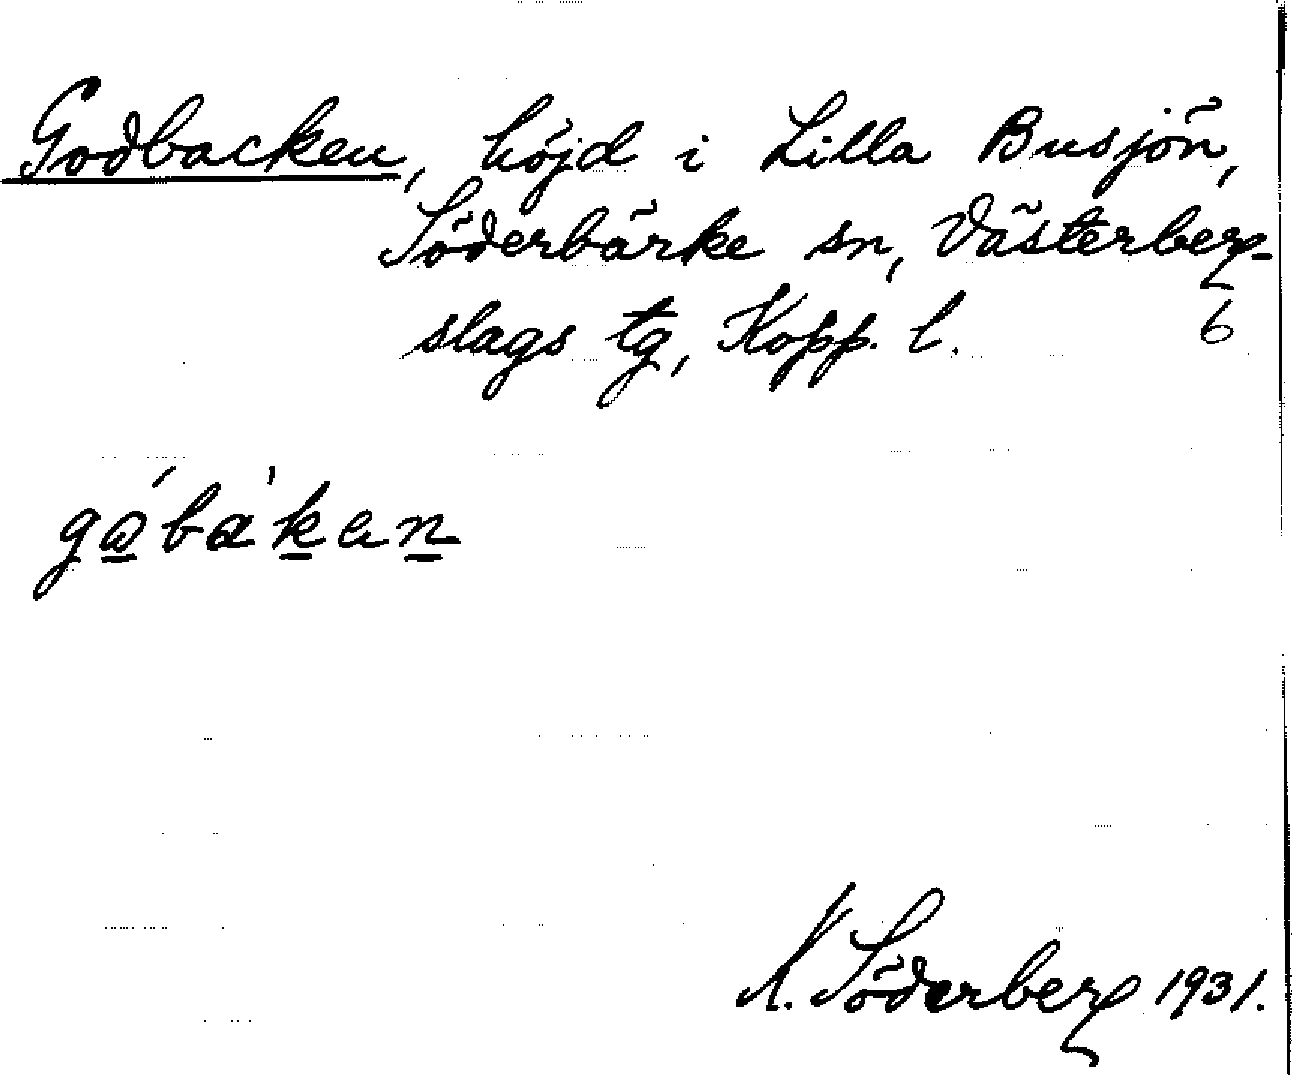 Godbacken, höjd i Lilla Busjön,
Söderbärke sn, Västerberg-
slags tg, Kopp. l. 6
K. Söderberg 1931.